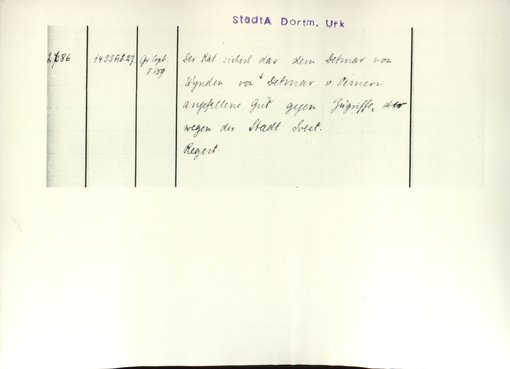 StadtA Dortm. Urk
2686 1433 Feb 27 Gr. Copb. Der Rat sichert das dem Detmar von
I 159 Wynden von Detmar v.
angefallene Gut gegen Zugriffe
wegen der Stadt Soest.
Regest